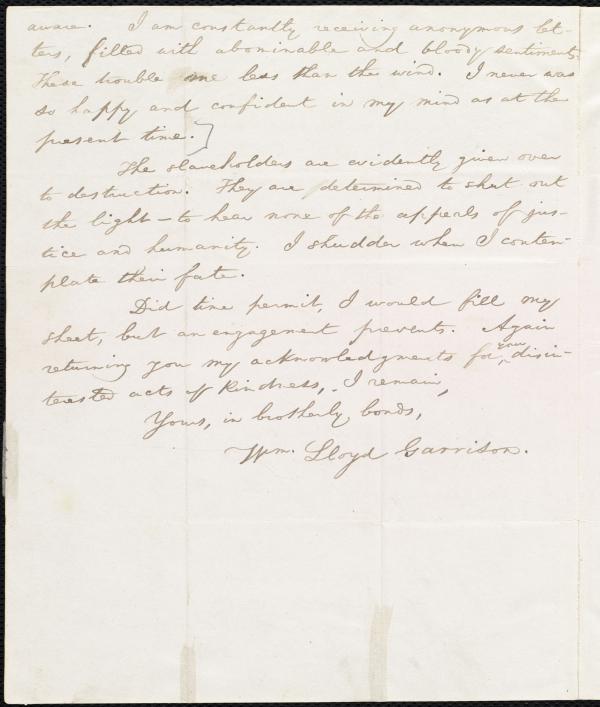 aware. I am constantly receiving anonymous let-
ters, filled with abominable and bloody sentiments.
These trouble me less than the wind. I never was
so happy and confident in my mind as at the
present time.]
The slaveholders are evidently given over
to destruction. They are determined to shut out
the light - to hear none of the appeals of jus-
tice and humanity. I shudder when I contem-
plate their fate.
Did time permit, I would fill my
sheet, but an engagement prevents. Again
returning you my acknowledgments for your disin-
terested acts of kindness, I remain,
Yours, in brotherly bonds,
Wm. Lloyd Garrison.